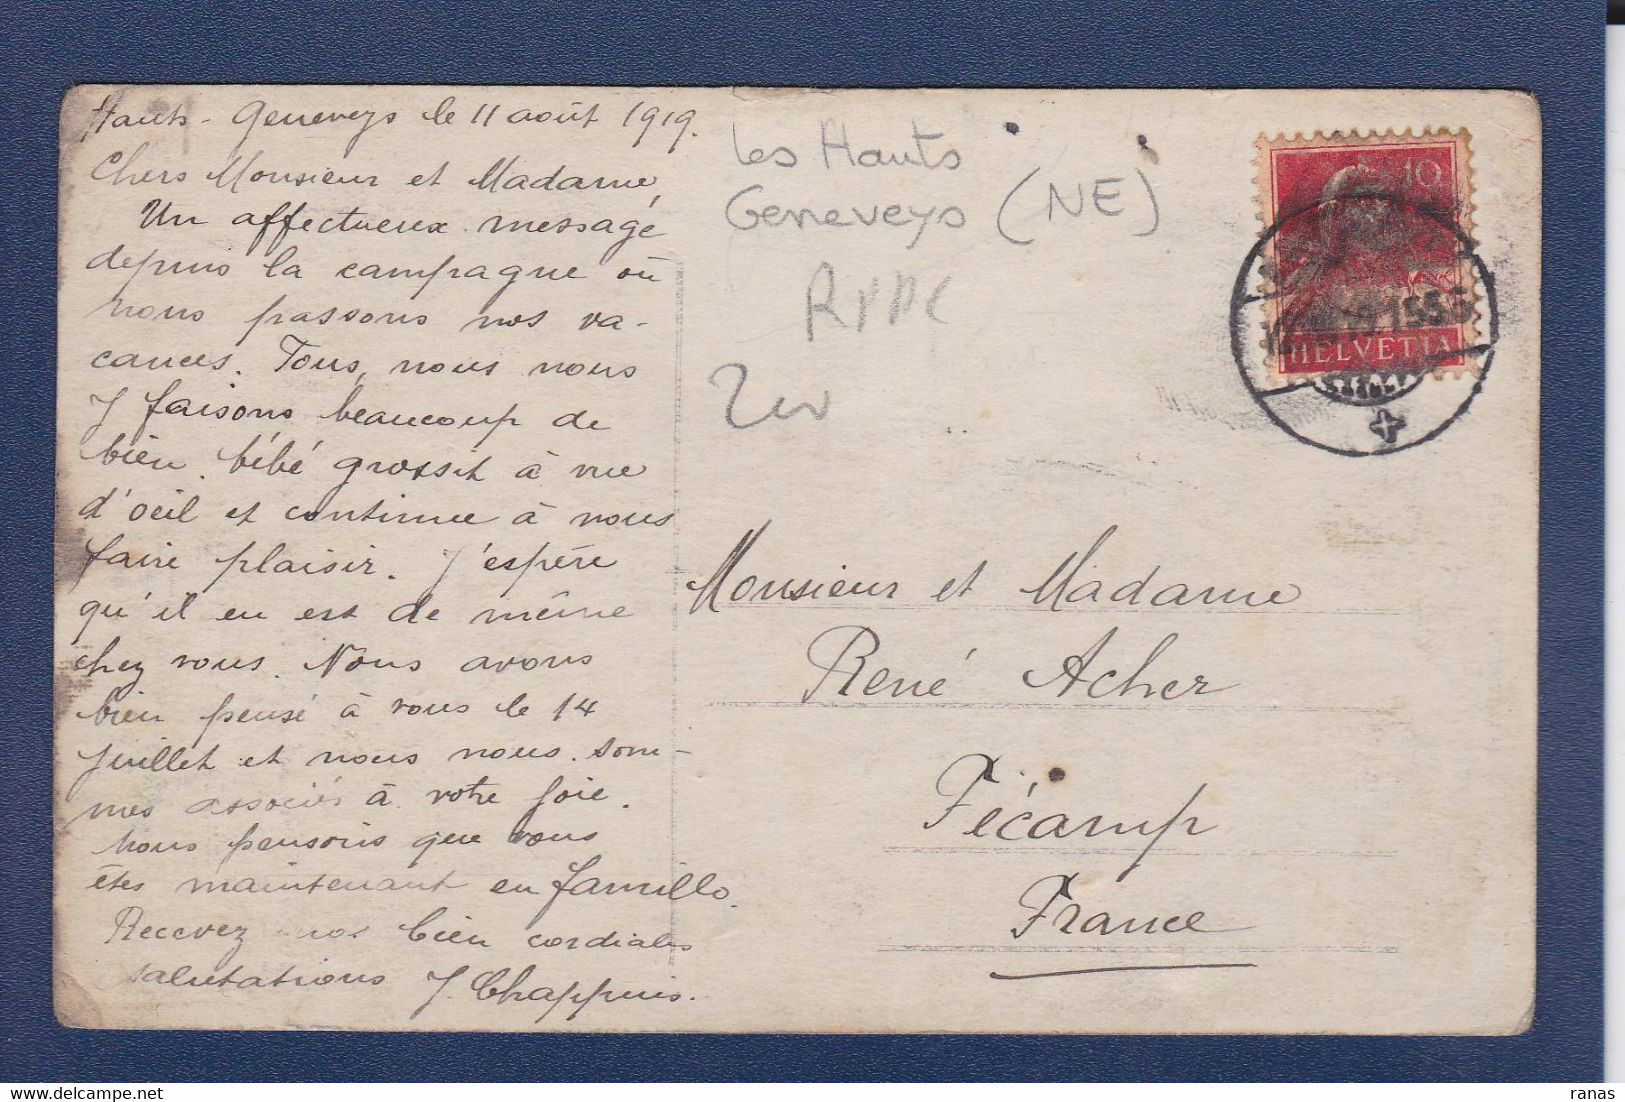 Hauts-Geneveys le 11 août 1919.
Chers Monsieur et Madame,
Un affectueux message
depuis la campagne où
nous passons nos va-
cances. Tous, nous nous
y faisons beaucoup de
bien. bébé grossit à vue
d'oeil et continue à nous
faire plaisir. J'espère
qu'il en est de même
chez vous. Nous avons
bien pensé à vous le 14
juillet et nous nous som-
mes associés à votre joie.
Nous pensons que vous
êtes maintenant en famille.
Recevez nos bien cordiales
salutations J. Chappuis.
Les Hauts
Geneveys (NE)
10
HELVETIA
Monsieur et Madame
René Acher
Fécamp
France
delcampe.net
ranas